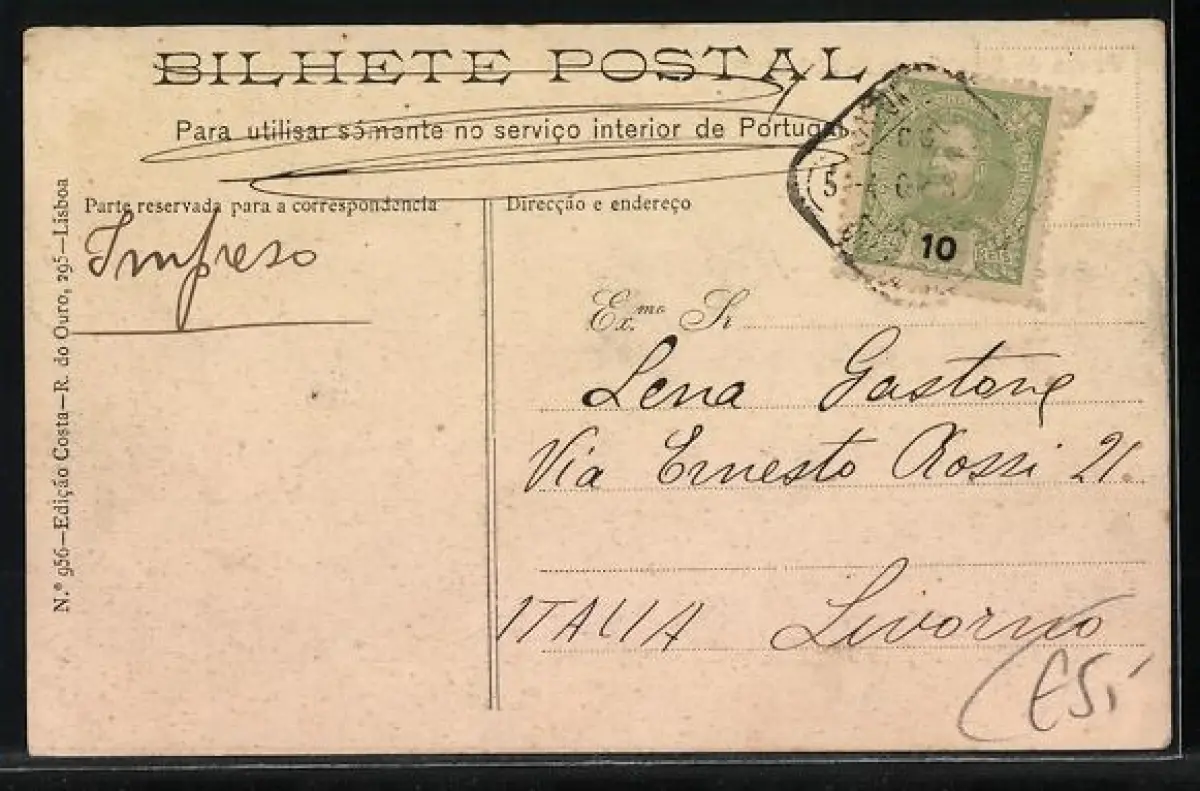 BILHETE POSTAL
Para utilisar sómente no serviço interior de Portugal
Parte reservada para a correspondencia
Direcção e endereço
Impreso
10
REIS
Ex.mo Sr
Lena Gastone
Via Ernesto Rossi 21.
ITALIA Livorno
N.º 956—Edição Costa—R. do Ouro, 295—Lisboa